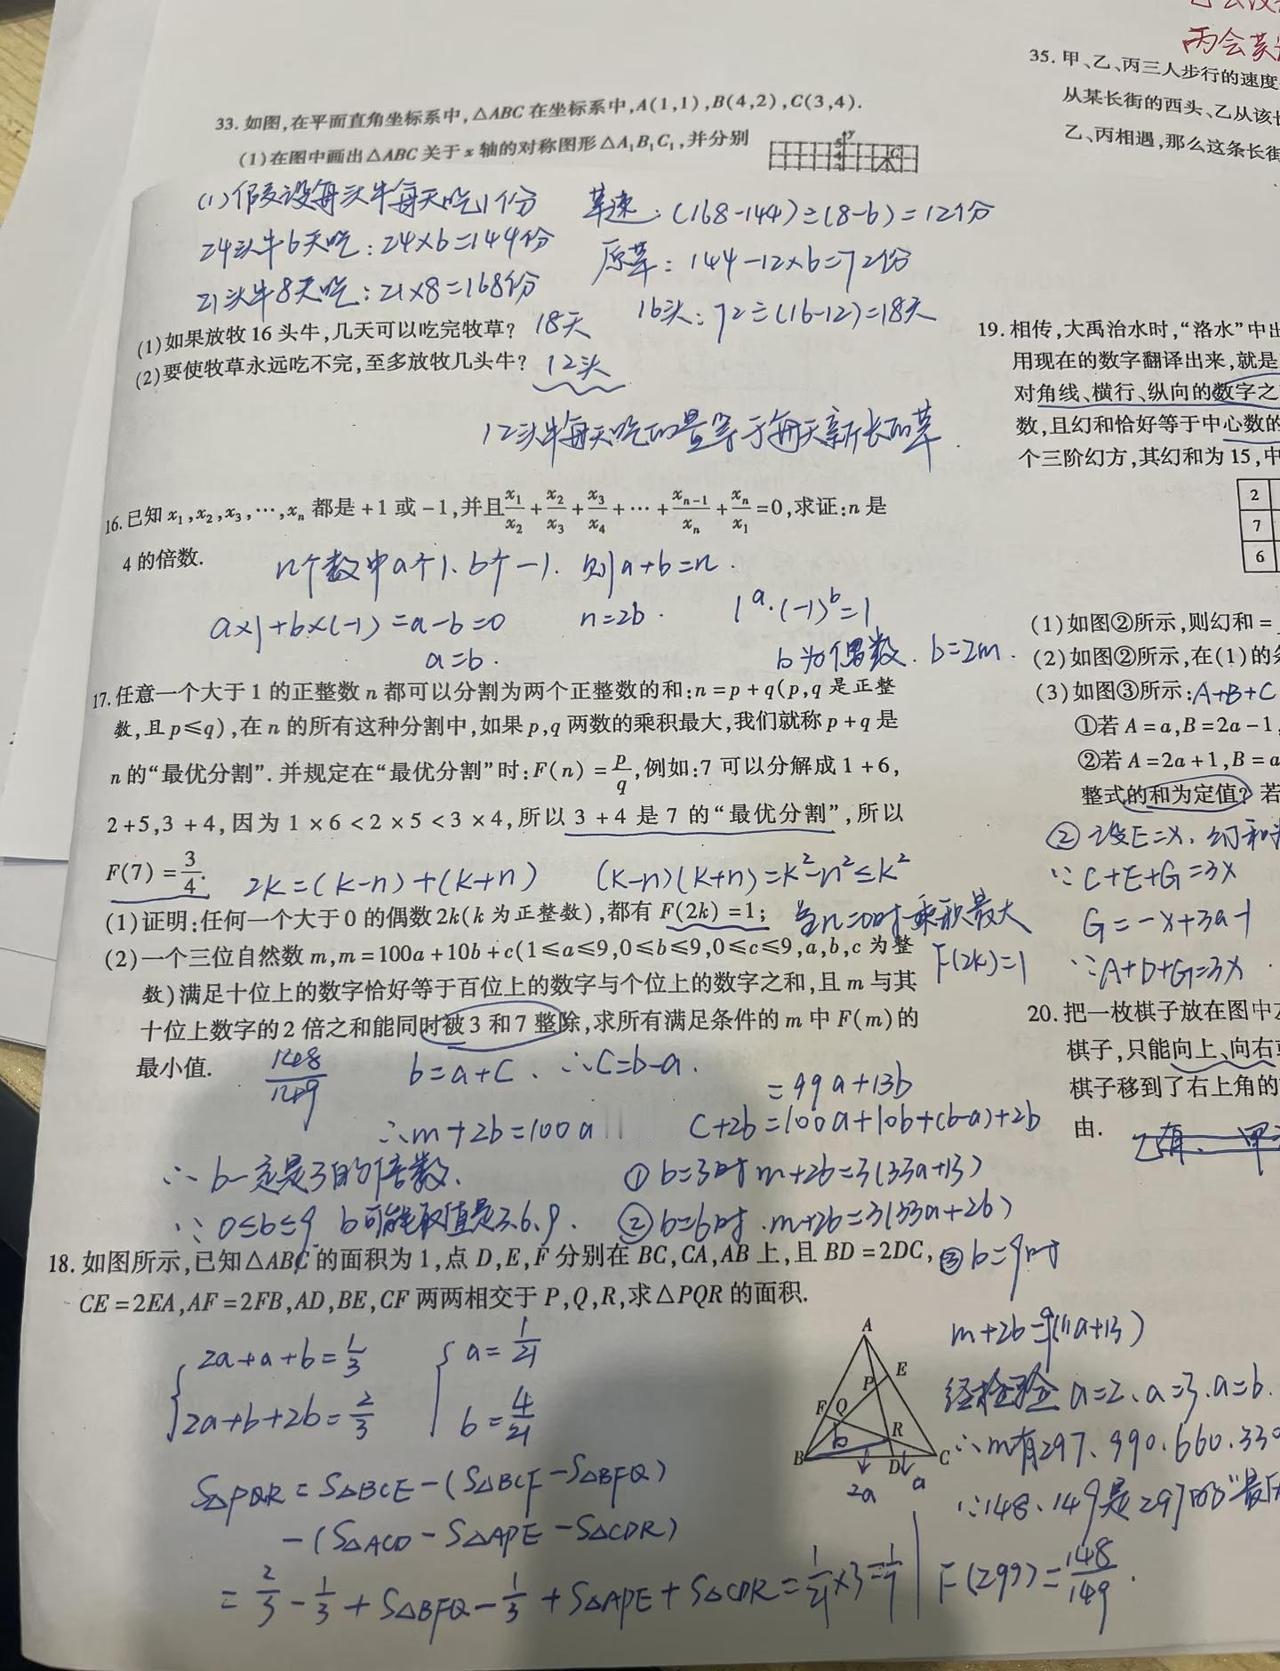 33. 如图,在平面直角坐标系中,△ABC 在坐标系中,A(1,1),B(4,2),C(3,4).
(1)在图中画出△ABC 关于 x 轴的对称图形△A₁B₁C₁,并分别
(1)假设每头牛每天吃1份
24头牛6天吃:24×6=144份
21头牛8天吃:21×8=168份
草速:(168-144)÷(8-6)=12份
原草:144-12×6=72份
16头:72÷(16-12)=18天
(1)如果放牧 16 头牛,几天可以吃完牧草? 18天
(2)要使牧草永远吃不完,至多放牧几头牛? 12头
12头牛每天吃的量等于每天新长的草.
16.已知 x₁,x₂,x₃,…,xₙ 都是 +1 或 -1,并且 x₁/x₂ + x₂/x₃ + x₃/x₄ + … + xₙ₋₁/xₙ + xₙ/x₁ =0,求证:n 是
4 的倍数.
n个数中a个1、b个-1. 则a+b=n.
a×1+b×(-1)=a-b=0 n=2b. 1ᵃ·(-1)ᵇ=1
a=b. b为偶数. b=2m.
17.任意一个大于 1 的正整数 n 都可以分割为两个正整数的和:n=p+q(p,q 是正整
数,且 p≤q),在 n 的所有这种分割中,如果 p,q 两数的乘积最大,我们就称 p+q 是
n 的“最优分割”.并规定在“最优分割”时:F(n)=p/q,例如:7 可以分解成 1+6,
2+5,3+4,因为 1×6<2×5<3×4,所以 3+4 是 7 的“最优分割”,所以
F(7)=3/4.
2k=(k-n)+(k+n) (k-n)(k+n)=k²-n²≤k²
(1)证明:任何一个大于 0 的偶数 2k(k 为正整数),都有 F(2k)=1; 当n=0时乘积最大
F(2k)=1
(2)一个三位自然数 m,m=100a+10b+c(1≤a≤9,0≤b≤9,0≤c≤9,a,b,c 为整
数)满足十位上的数字恰好等于百位上的数字与个位上的数字之和,且 m 与其
十位上数字的 2 倍之和能同时被 3 和 7 整除,求所有满足条件的 m 中 F(m) 的
最小值.
148/149
b=a+c. ∴c=b-a.
=99a+13b
∴m+2b=100a
c+2b=100a+10b+(b-a)+2b
∴b一定是3的倍数.
①b=3时 m+2b=3(33a+13)
∵0≤b≤9. b可能取值是3.6.9.
②b=6时.m+2b=3(33a+26)
18. 如图所示,已知△ABC 的面积为 1,点 D,E,F 分别在 BC,CA,AB 上,且 BD=2DC,
③b=9时
CE=2EA,AF=2FB,AD,BE,CF 两两相交于 P,Q,R,求△PQR 的面积.
m+2b=9(11a+13)
2a+a+b=1/3
2a+b+2b=2/3
a=1/21
b=4/21
A
E
P
F
Q
b
R
B
D
C
2a
a
经检验 a=2、a=3.a=6.
∴m有297、990.660.330
∵148、149是297的“最
S△PQR=S△BCE-(S△BCF-S△BFQ)
-(S△ACD-S△APE-S△CDR)
=2/3-1/3+S△BFQ-1/3+S△APE+S△CDR=1/21×3=1/7
F(297)=148/149.
丙会英
35. 甲、乙、丙三人步行的速度
从某长街的西头、乙从该长
乙、丙相遇,那么这条长街
19. 相传,大禹治水时,“洛水”中出
用现在的数字翻译出来,就是
对角线、横行、纵向的数字之
数,且幻和恰好等于中心数的
个三阶幻方,其幻和为 15,中
2
7
6
(1)如图②所示,则幻和=
(2)如图②所示,在(1)的条
(3)如图③所示:A+B+C
①若 A=a,B=2a-1,
②若 A=2a+1,B=a
整式的和为定值?若
②设E=x、幻和
∵C+E+G=3x
G=-x+3a-1
∵A+D+G=3x
20. 把一枚棋子放在图中左
棋子,只能向上、向右
棋子移到了右上角的
由.